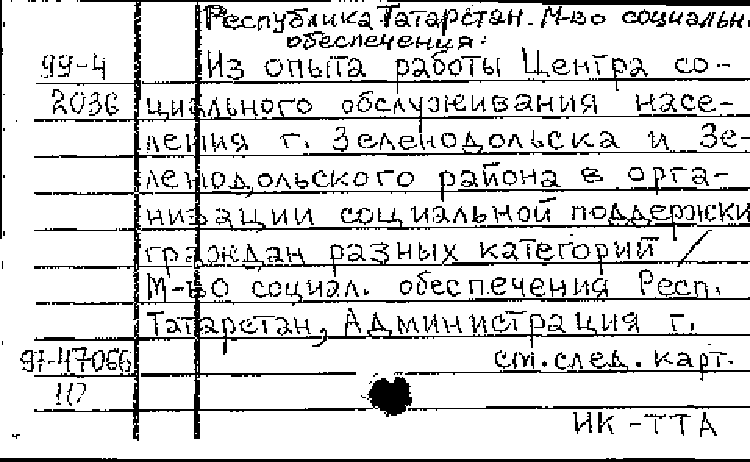 Республика Татарстан. М-во социальн
обеспечения:
99-4 Из опыта работы Центра со-
2036 циального обслуживания насе-
ления г. Зеленодольска и Зе-
ленодольского района в орга-
низации социальной поддержки
граждан разных категорий /
М-во социал. обеспечения Респ.
Татарстан, Администрация г.
97-47066 см. след. карт.
ИК-ТТА